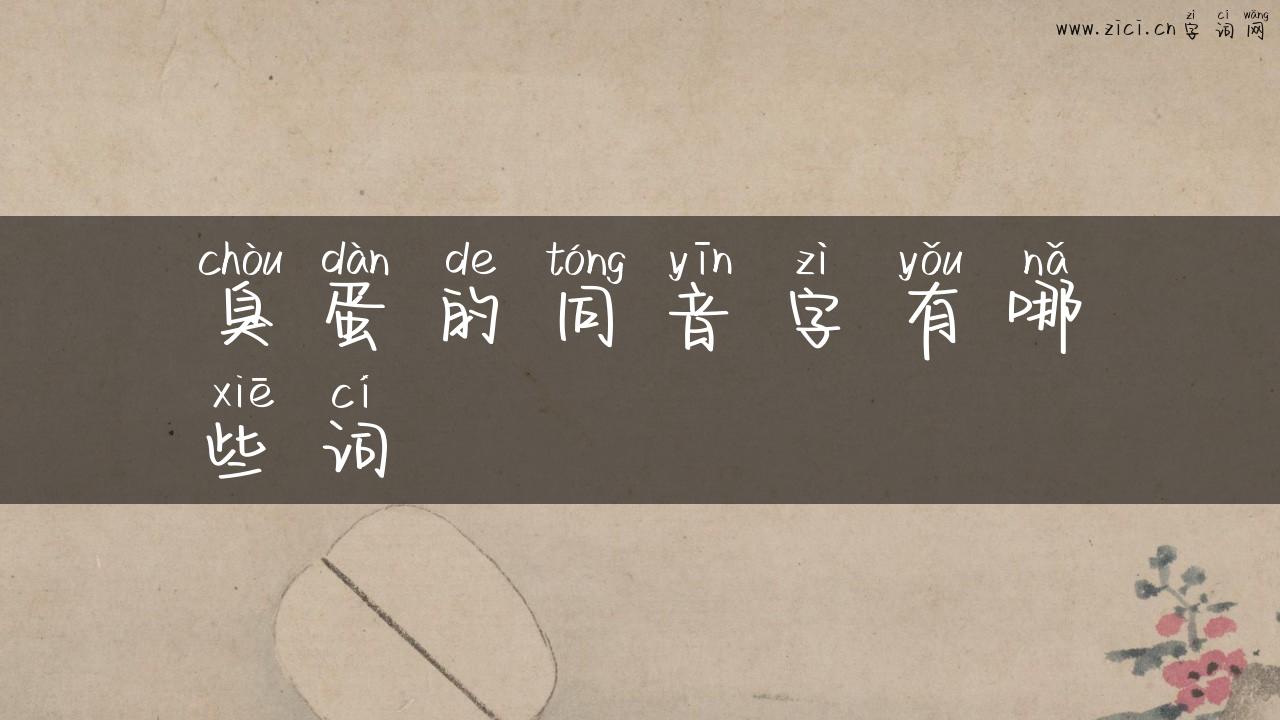 zì cí wǎng
www.zici.cn 字词网
chòu dàn de tóng yīn zì yǒu nǎ
臭蛋的同音字有哪
xiē cí
些词